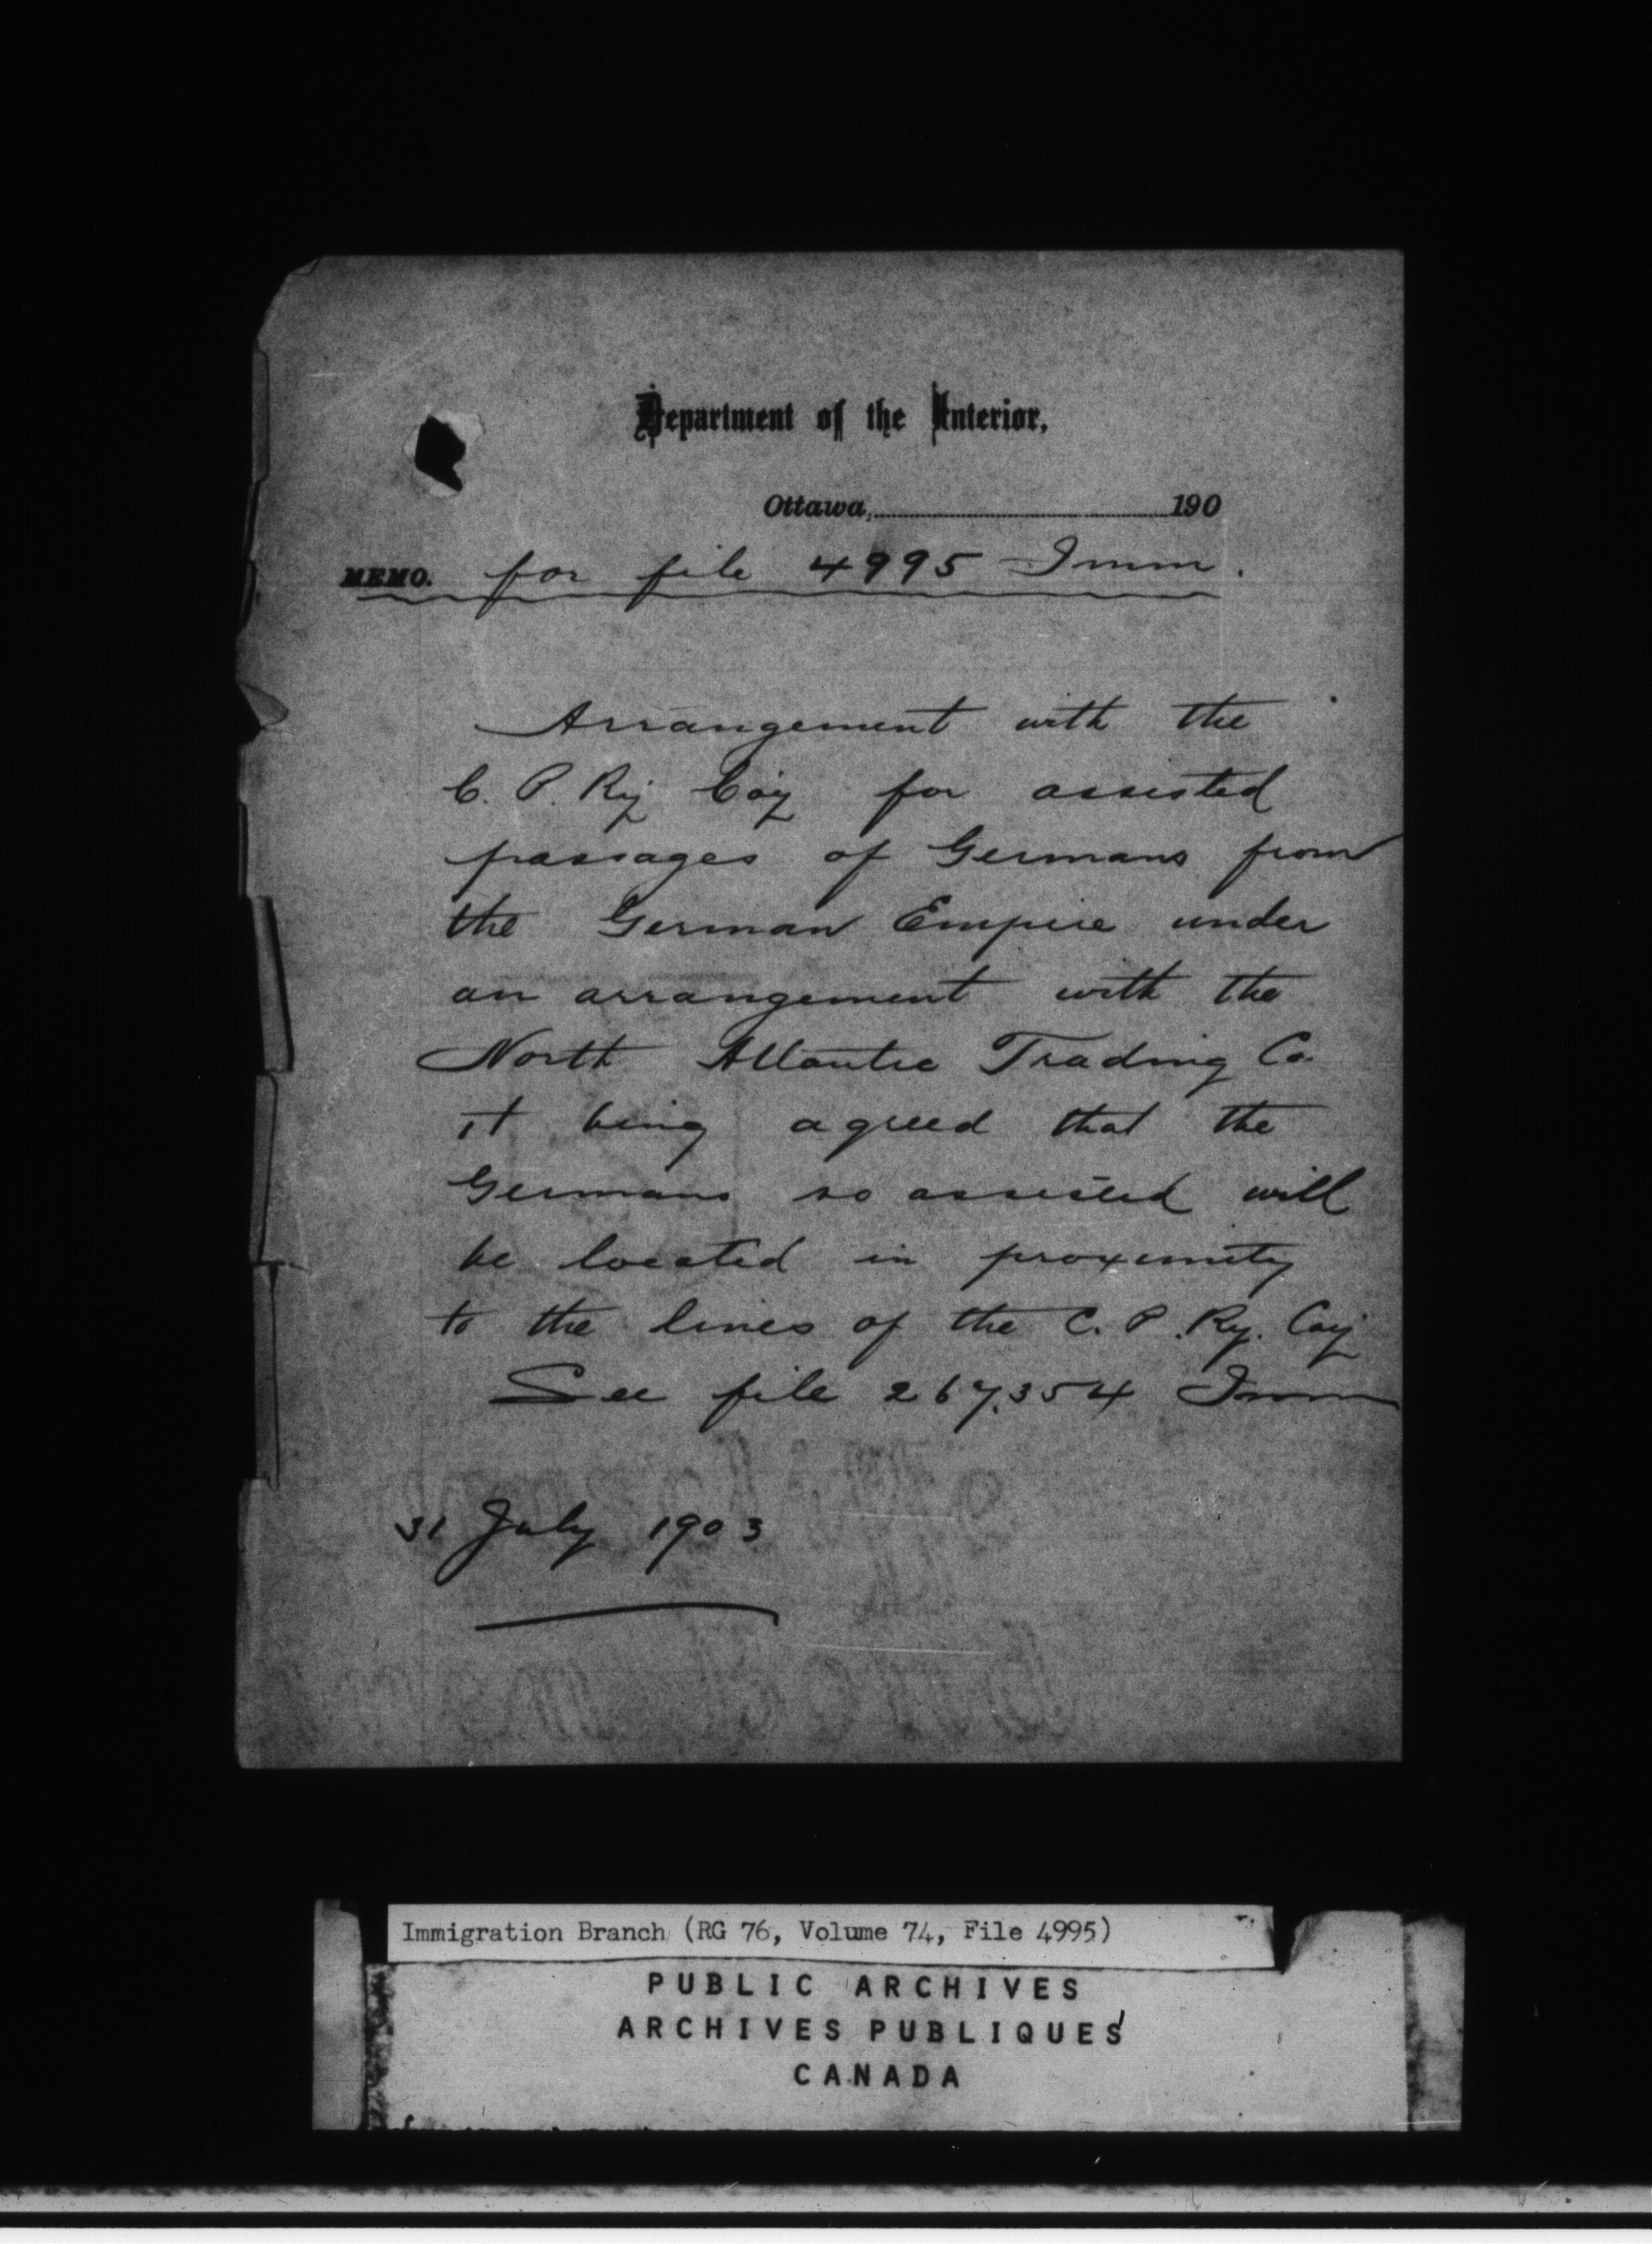 Department of the Interior,
Ottawa, 190
MEMO. for file 4995 Imm.
Arrangement with the
C. P. Ry Coy for assisted
passages of Germans from
the German Empire under
an arrangement with the
North Atlantic Trading Co.
it being agreed that the
Germans so assisted will
be located in proximity
to the lines of the C. P. Ry. Coy
See file 267,354 Imm
31 July 1903
Immigration Branch (RG 76, Volume 74, File 4995)
PUBLIC ARCHIVES
ARCHIVES PUBLIQUES
CANADA